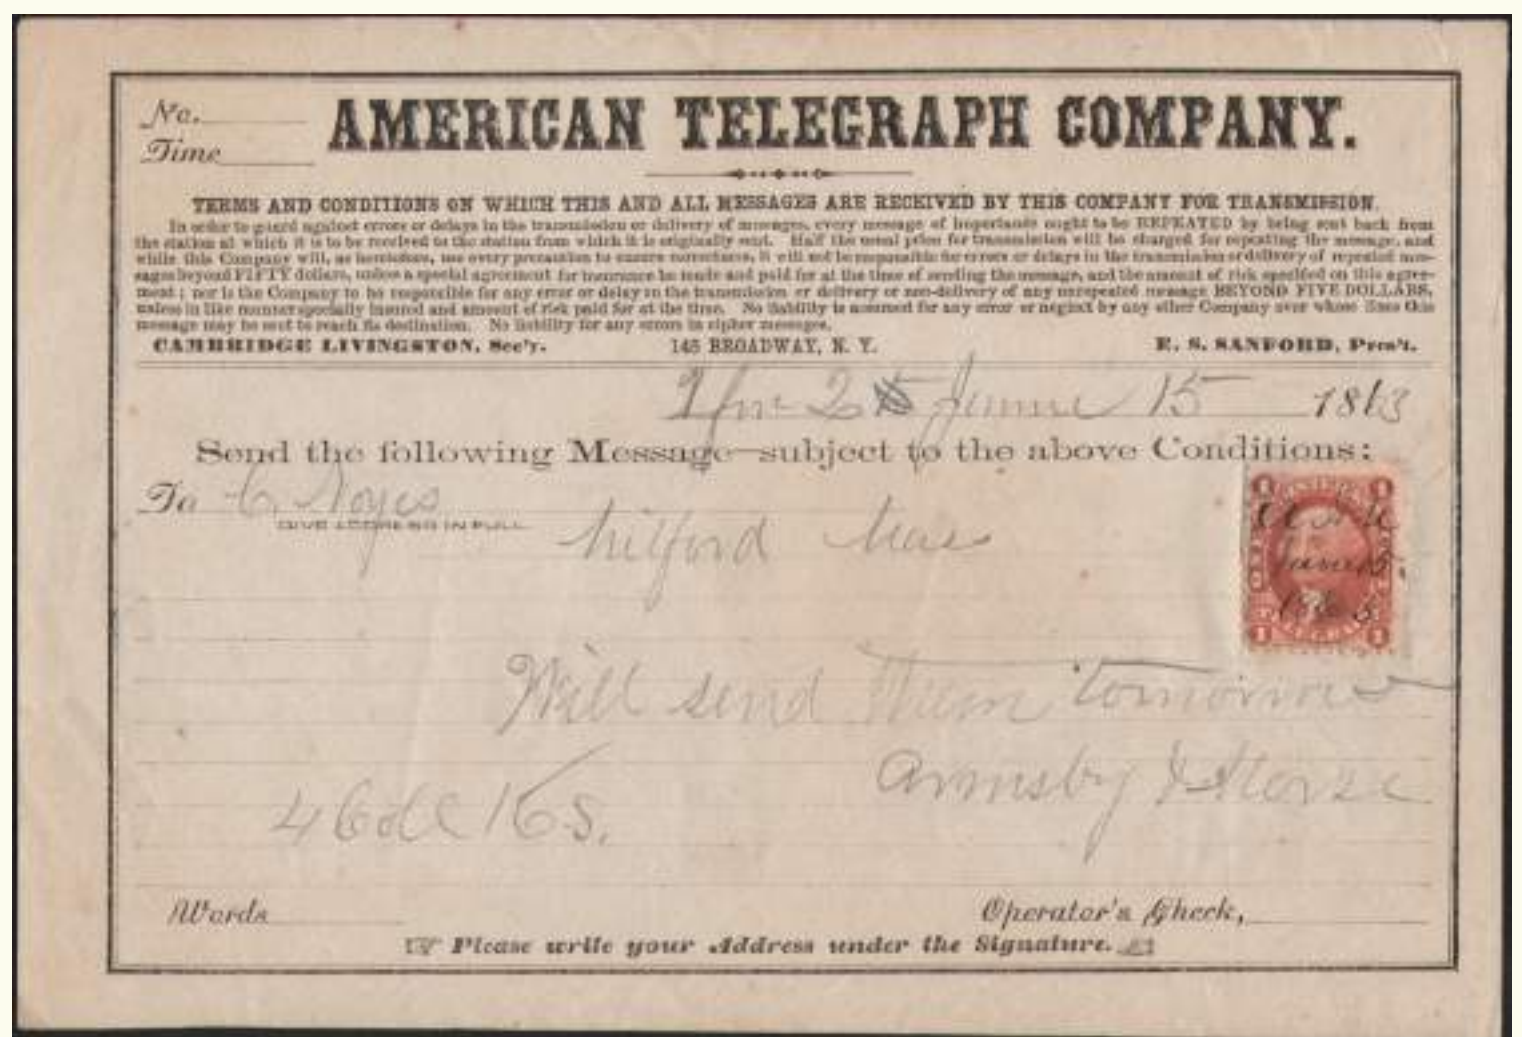 No.
Time
AMERICAN TELEGRAPH COMPANY.
TERMS AND CONDITIONS ON WHICH THIS AND ALL MESSAGES ARE RECEIVED BY THIS COMPANY FOR TRANSMISSION.
In order to guard against errors or delays in the transmission or delivery of messages, every message of importance ought to be REPEATED by being sent back from
the station at which it is to be received to the station from which it is originally sent. Half the usual price for transmission will be charged for repeating the message, and
while this Company will, as heretofore, use every precaution to ensure correctness, it will not be responsible for errors or delays in the transmission or delivery of repeated mes-
sages beyond FIFTY dollars, unless a special agreement for insurance be made and paid for at the time of sending the message, and the amount of risk specified on this agree-
ment; nor is the Company to be responsible for any error or delay in the transmission or delivery or non-delivery of any unrepeated message BEYOND FIVE DOLLARS,
unless in like manner specially insured and amount of risk paid for at the time. No liability is assumed for any error or neglect by any other Company over whose lines this
message may be sent to reach its destination. No liability for any errors in cipher messages.
CAMBRIDGE LIVINGSTON, Sec'y. 145 BROADWAY, N. Y. E. S. SANFORD, Pres't.
June 15 1863
Send the following Message subject to the above Conditions:
To C. Noyes
GIVE ADDRESS IN FULL
Milford Mas
Will send them tomorrow
Armsby & Morse
Words
Operator's Check,
Please write your Address under the Signature.
1 1
June 15.
TELEGRAPH
1 1